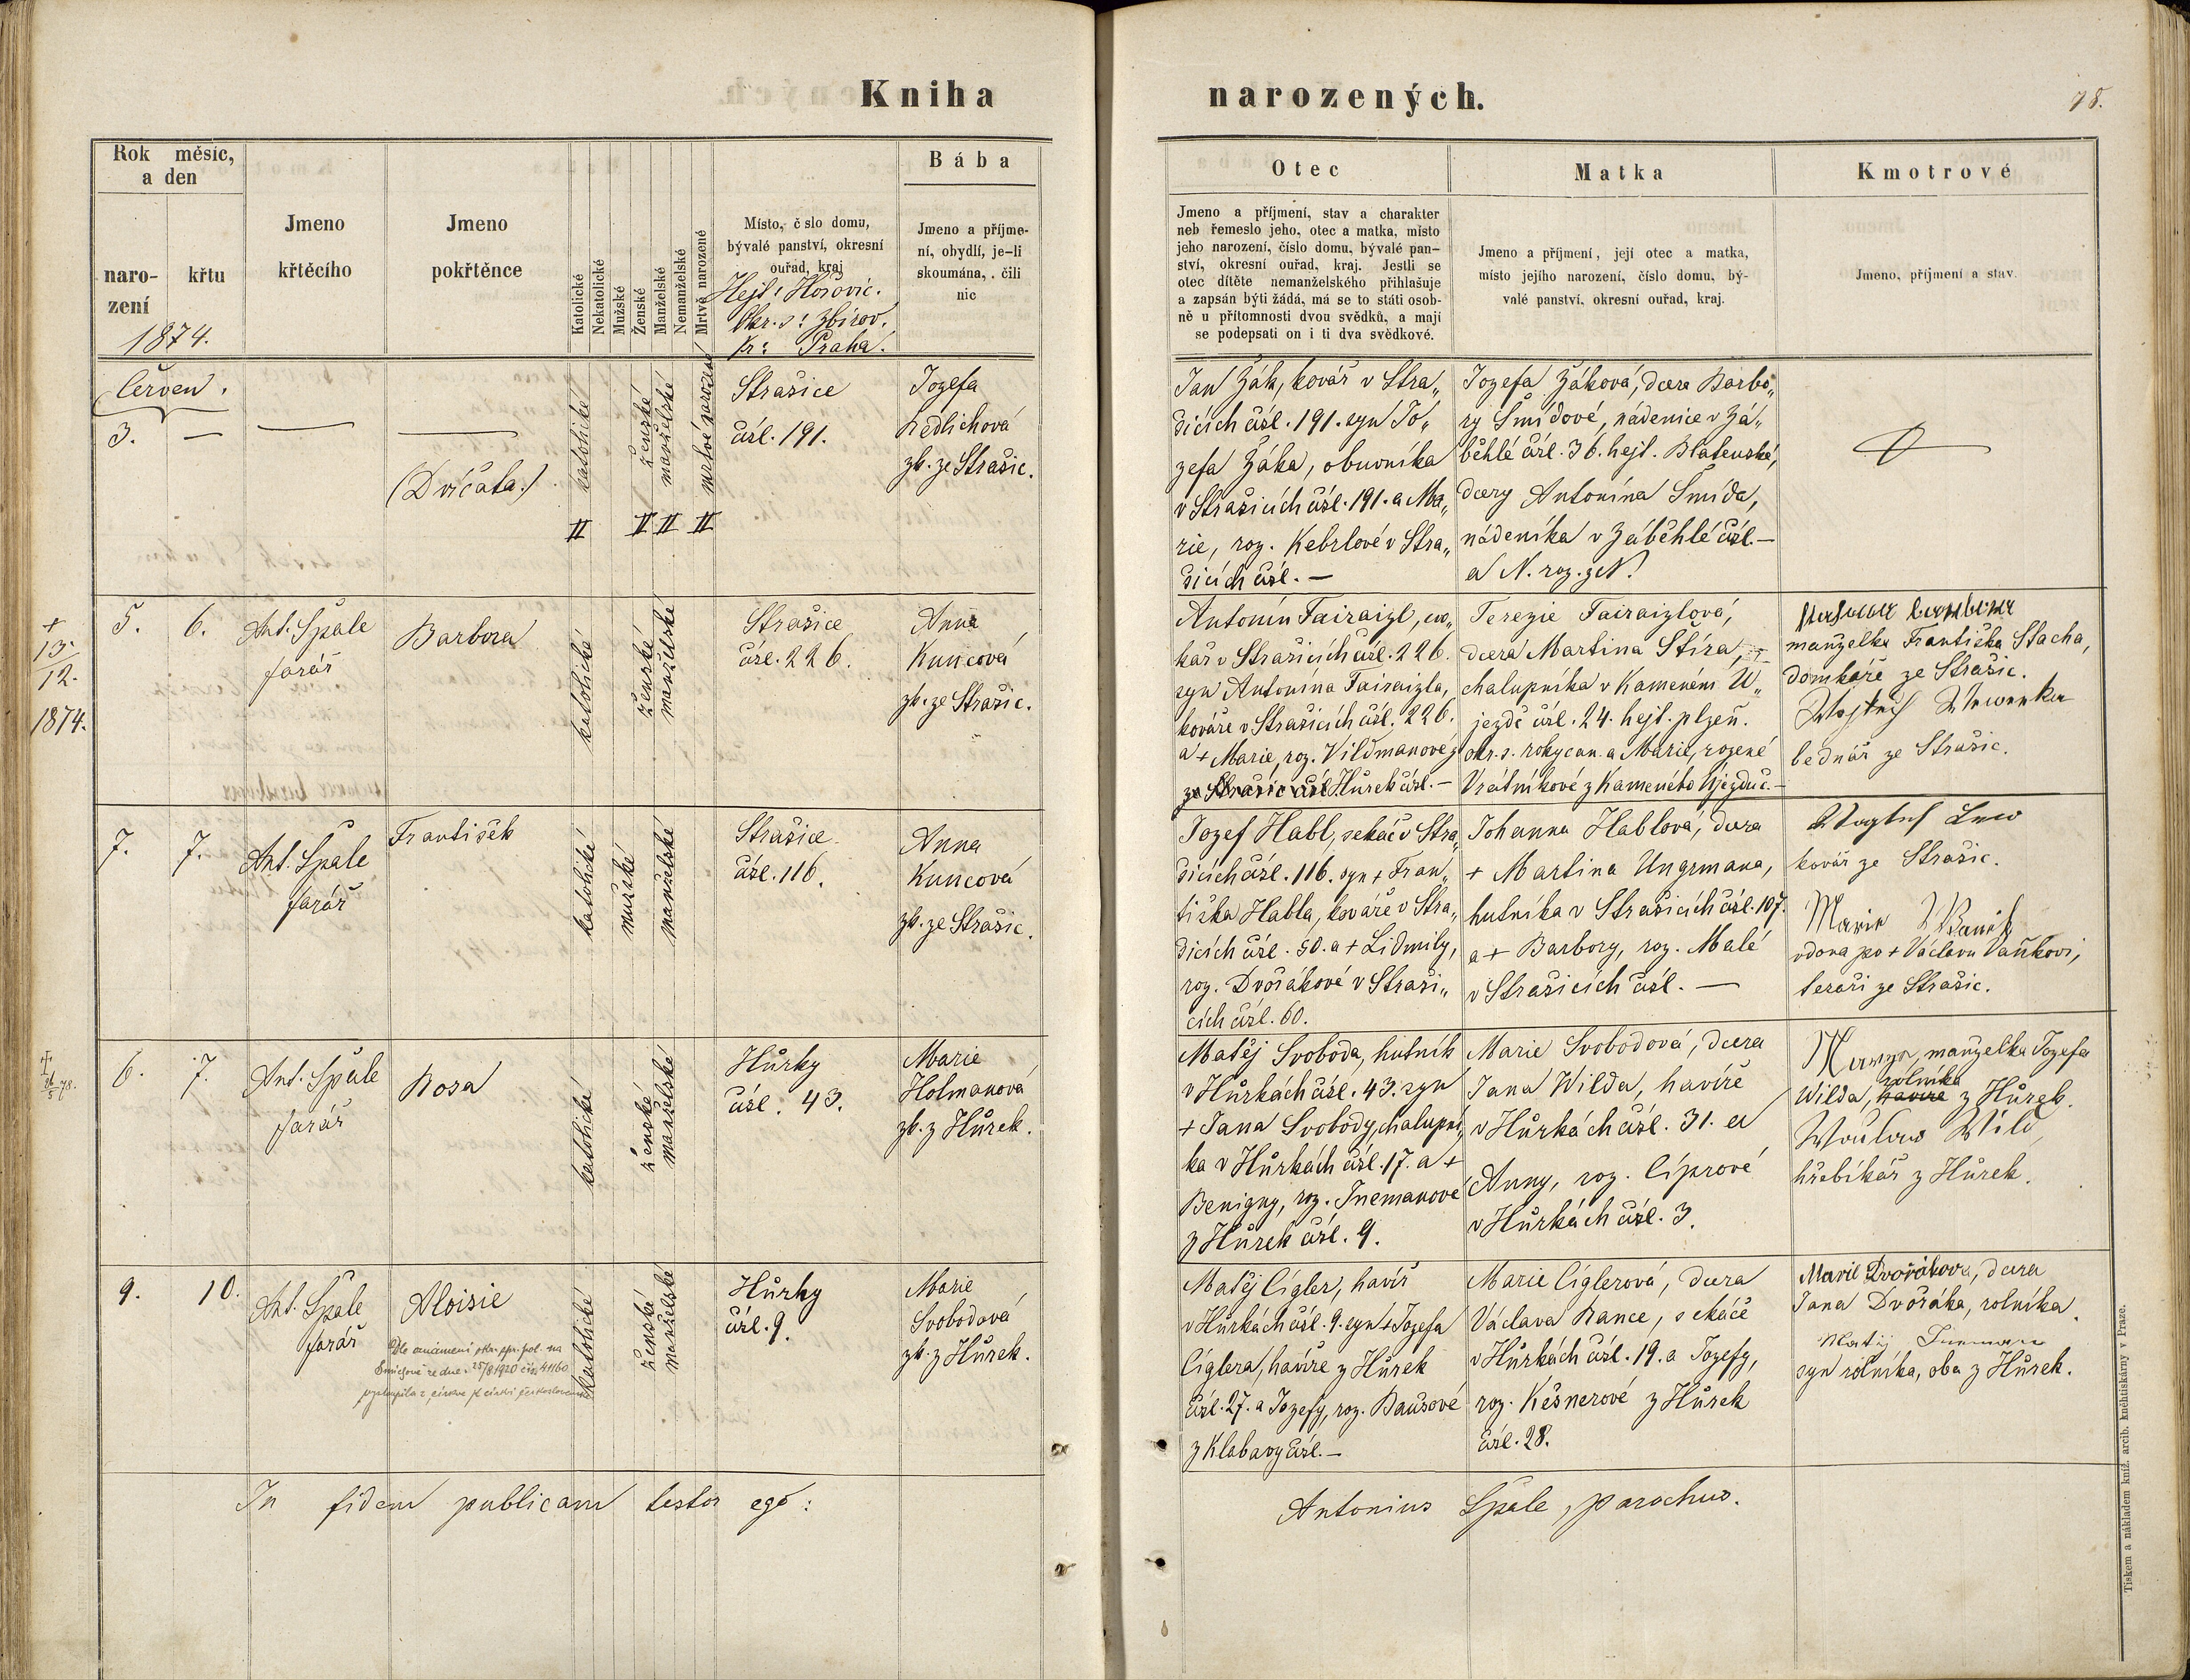 Kniha
narozených.
78.
Rok měsíc,
a den
naro-
zení
křtu
1874.
Jmeno
křtěcího
Jmeno
pokřtěnce
Katolické
Nekatolické
Mužské
Ženské
Manželské
Nemanželské
Mrtvě narozené
Místo, č slo domu,
bývalé panství, okresní
ouřad, kraj
Hejt: Hořovic.
Okr. s: Zbirov.
Kr: Praha.
Bába
Jmeno a příjme-
ní, obydlí, je-li
skoumána, . čili
nic
Otec
Jmeno a příjmení, stav a charakter
neb řemeslo jeho, otec a matka, místo
jeho narození, číslo domu, bývalé pan-
ství, okresní ouřad, kraj. Jestli se
otec dítěte nemanželského přihlašuje
a zapsán býti žádá, má se to státi osob-
ně u přítomnosti dvou svědků, a mají
se podepsati on i ti dva svědkové.
Matka
Jmeno a příjmení, její otec a matka,
místo jejího narození, číslo domu, bý-
valé panství, okresní ouřad, kraj.
Kmotrové
Jmeno, příjmení a stav.
Červen.
3. — — —
(Dvíčata.)
katolické II
ženské II
manželské II
mrtvě narozené II
Strašice
čísl. 191.
Jozefa
Redlichová
zk. ze Strašic.
Jan Žák, kovář v Stra„
šicích čísl. 191. syn Jo„
zefa Žáka, obuvníka
v Strašicích čísl. 191. a Ma„
rie, roz. Kebrlové v Stra„
šicích čísl. —
Jozefa Žáková, dcera Barbo„
ry Šmídové, nádenice v Zá„
běhlé čísl. 36. hejt. Blatenské,
dcery Antonína Šmída,
nádeníka v Záběhlé čísl. —
a N. roz. z N.
+
13.
12.
1874.
5. 6.
Ant. Špale
farář
Barbora
katolické
ženské
manželské
Strašice
čísl. 226.
Anna
Kuncová
zk. ze Strašic.
Antonín Fairaizl, cvo„
kář v Strašicích čísl. 226.
syn Antonína Fairaizla,
kováře v Strašicích čísl. 226.
a + Marie, roz. Vildmanové z
ze Strašic čísl Hůrek čísl. —
Terezie Fairaizlová,
dcera Martina Štíra,
chalupníka v Kameném U„
jezdě čísl. 24. hejt. plzeň.
okr. s. rokycan. a Marie, rozené
Vrátníkové z Kameného Újezdu č. —
manželka Františka Stacha,
domkáře ze Strašic.
bednář ze Strašic.
7. 7.
Ant. Špale
farář
František
katolické
mužské
manželské
Strašice
čísl. 116.
Anna
Kuncová
zk. ze Strašic.
Jozef Habl, sekáč v Stra„
šicích čísl. 116. syn + Fran„
tiška Habla, kováře v Stra„
šicích čísl. 50. a + Lidmily,
roz. Dvořákové v Straši„
cích čísl. 60.
Johanna Hablová, dcera
+ Martina Ungrmana,
hutníka v Strašicích čísl. 107.
a + Barbory, roz. Malé
v Strašicích čísl. —
kovář ze Strašic.
vdova po + Václavu Vaňkovi,
tesaři ze Strašic.
6. 7.
Ant. Špale
farář
Rosa
katolické
ženské
manželské
Hůrky
čísl. 43.
Marie
Holmanová
zk. z Hůrek.
Matěj Svoboda, hutník
v Hůrkách čísl. 43. syn
+ Jana Svobody, chalupní„
ka v Hůrkách čísl. 17. a +
Benigny, roz. Jnemanové
z Hůrek čísl. 9.
Marie Svobodová, dcera
Jana Wilda, havíře
v Hůrkách čísl. 31. a
Anny, roz. Cíprové
v Hůrkách čísl. 3.
manželka Jozefa
rolníka
Wilda, havíře z Hůrek.
Wild
hřebíkář z Hůrek.
9. 10.
Ant. Špale
farář
Aloisie
katolické
ženské
manželské
Hůrky
čísl. 9.
Marie
Svobodová
zk. z Hůrek.
Matěj Cígler, havíř
v Hůrkách čísl. 9. syn + Jozefa
Cíglera, havíře z Hůrek
čísl. 27. a Jozefy, roz. Baušové
z Klabavy čísl. —
Marie Cíglerová, dcera
Václava Rance, sekáče
v Hůrkách čísl. 19. a Jozefy,
roz. Kešnerové z Hůrek
čísl. 28.
Marie Dvořákova, dcera
Jana Dvořáka, rolníka
Matěj
syn rolníka, oba z Hůrek.
In fidem publicam testor ego:
Antonius Špale, parochus.
Tiskem a nákladem kníž. arcib. kněhtiskárny v Praze.